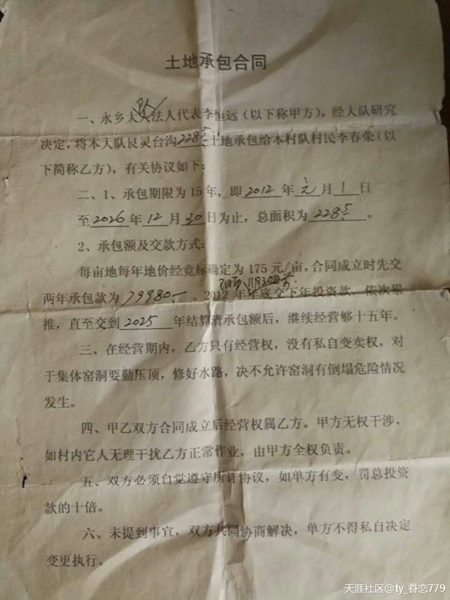 土地承包合同
一、永乡大队法人代表李恒远（以下称甲方），经大队研究
决定，将本大队艮灵台沟228.5土地承包给本村队村民李春荣（以
下简称乙方），有关协议如下：
二、1、承包期限为15年，即2012年元月1日
至2026年12月30日为止，总面积为228.5。
2、承包额及交款方式：
每亩地每年地价经竞标确定为175元/亩，合同成立时先交
两年承包款为79980.-，2012年年底交下年投资款，依次照
推，直至交到2025年结算清承包额后，继续经营够十五年。
三、在经营期内，乙方只有经营权，没有私自变卖权，对
于集体窑洞要勤压顶，修好水路，决不允许窑洞有倒塌危险情况
发生。
四、甲乙双方合同成立后经营权属乙方。甲方无权干涉，
如村内它人无理干扰乙方正常作业，由甲方全权负责。
五、双方必须自觉遵守所订协议，如单方有变，罚总投资
款的十倍。
六、未提到事宜，双方共同协商解决，单方不得私自决定
变更执行。
天涯社区@ty_眷恋779